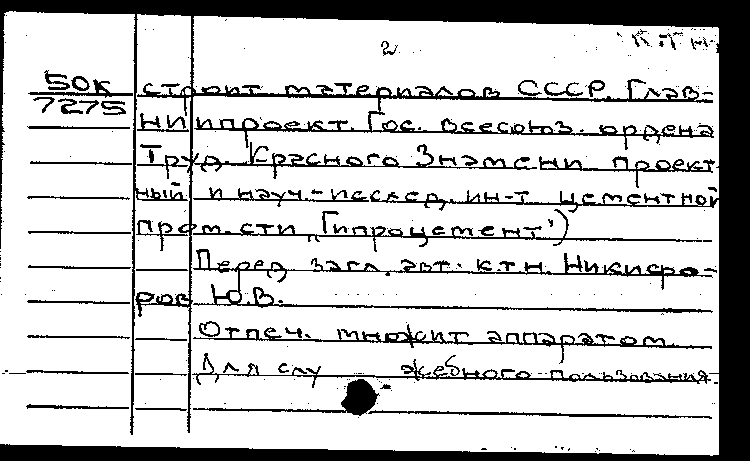 2
К.Т.Н.
50К строит. материалов СССР. Глав-
7275 НИИпроект. Гос. всесоюз. ордена
Труд. Красного Знамени проект-
ный и науч.-исслед. ин-т цементной
пром-сти „Гипроцемент")
Перед загл. авт. к.т.н. Никифо-
ров Ю.В.
Отпеч. множит. аппаратом.
Для служебного пользования.